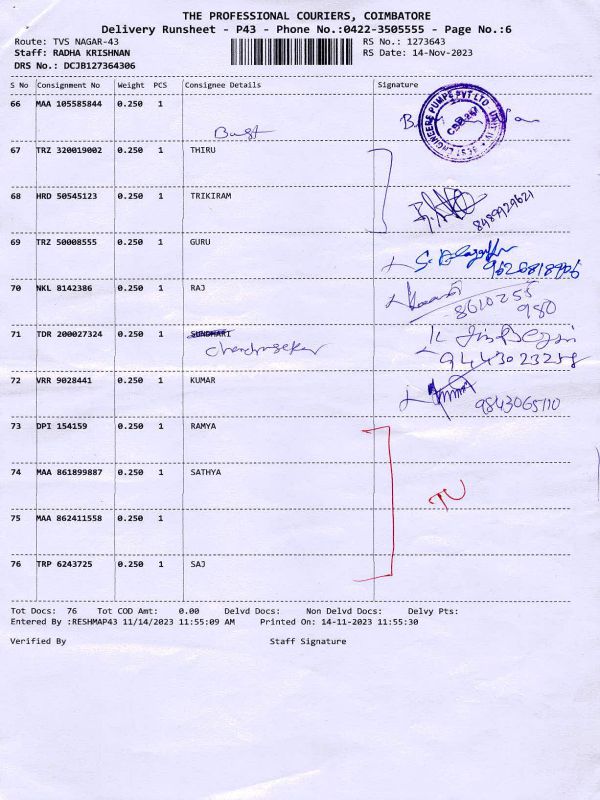 THE PROFESSIONAL COURIERS, COIMBATORE
Delivery Runsheet - P43 - Phone No.:0422-3505555 - Page No.:6
Route: TVS NAGAR-43 RS No.: 1273643
Staff: RADHA KRISHNAN RS Date: 14-Nov-2023
DRS No.: DCJB127364306
S No Consignment No Weight PCS Consignee Details Signature
66 MAA 105585844 0.250 1
67 TRZ 320019002 0.250 1 THIRU
68 HRD 50545123 0.250 1 TRIKIRAM
8489929621
69 TRZ 50008555 0.250 1 GURU
70 NKL 8142386 0.250 1 RAJ
8610255
980
71 TDR 200027324 0.250 1 SUNDHARI
Chandrasekar
9443023258
72 VRR 9028441 0.250 1 KUMAR
9843065110
73 DPI 154159 0.250 1 RAMYA
74 MAA 861899887 0.250 1 SATHYA
TU
75 MAA 862411558 0.250 1
76 TRP 6243725 0.250 1 SAJ
Tot Docs: 76 Tot COD Amt: 0.00 Delvd Docs: Non Delvd Docs: Delvy Pts:
Entered By :RESHMAP43 11/14/2023 11:55:09 AM Printed On: 14-11-2023 11:55:30
Verified By Staff Signature